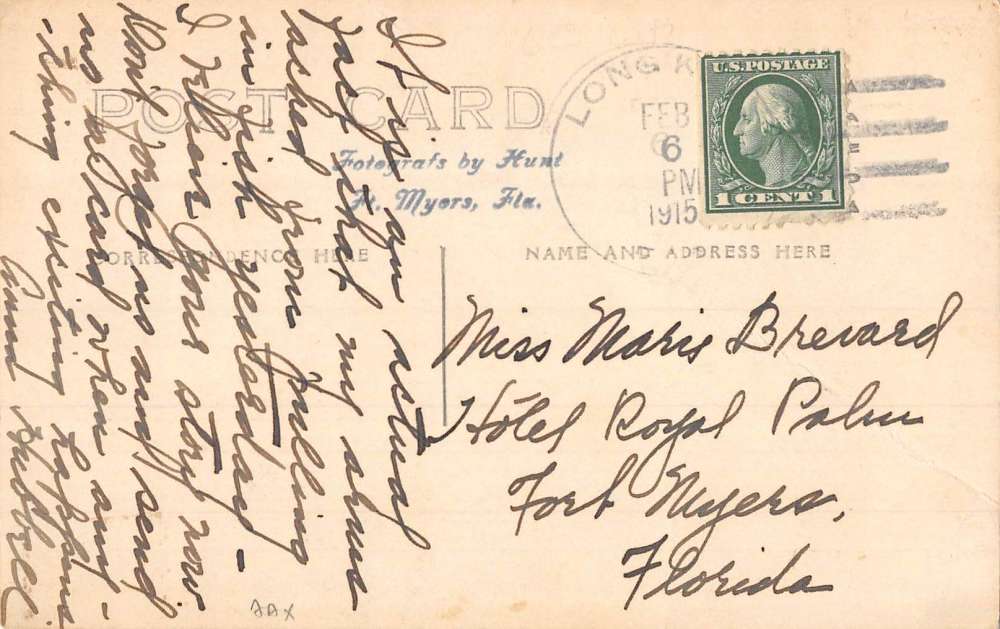 POST CARD
Fotografs by Hunt
Ft. Myers, Fla.
CORRESPONDENCE HERE
NAME AND ADDRESS HERE
LONG K
FEB
6
PM
1915
U.S. POSTAGE
1 CENT 1
If you
fact that my arms
ached from pulling
in fish yesterday -
I believe your story now
Don't forget us and send
us a card when any-
-thing exciting happens
Anna
Miss Marie Brevard
Hotel Royal Palm
Fort Myers,
Florida